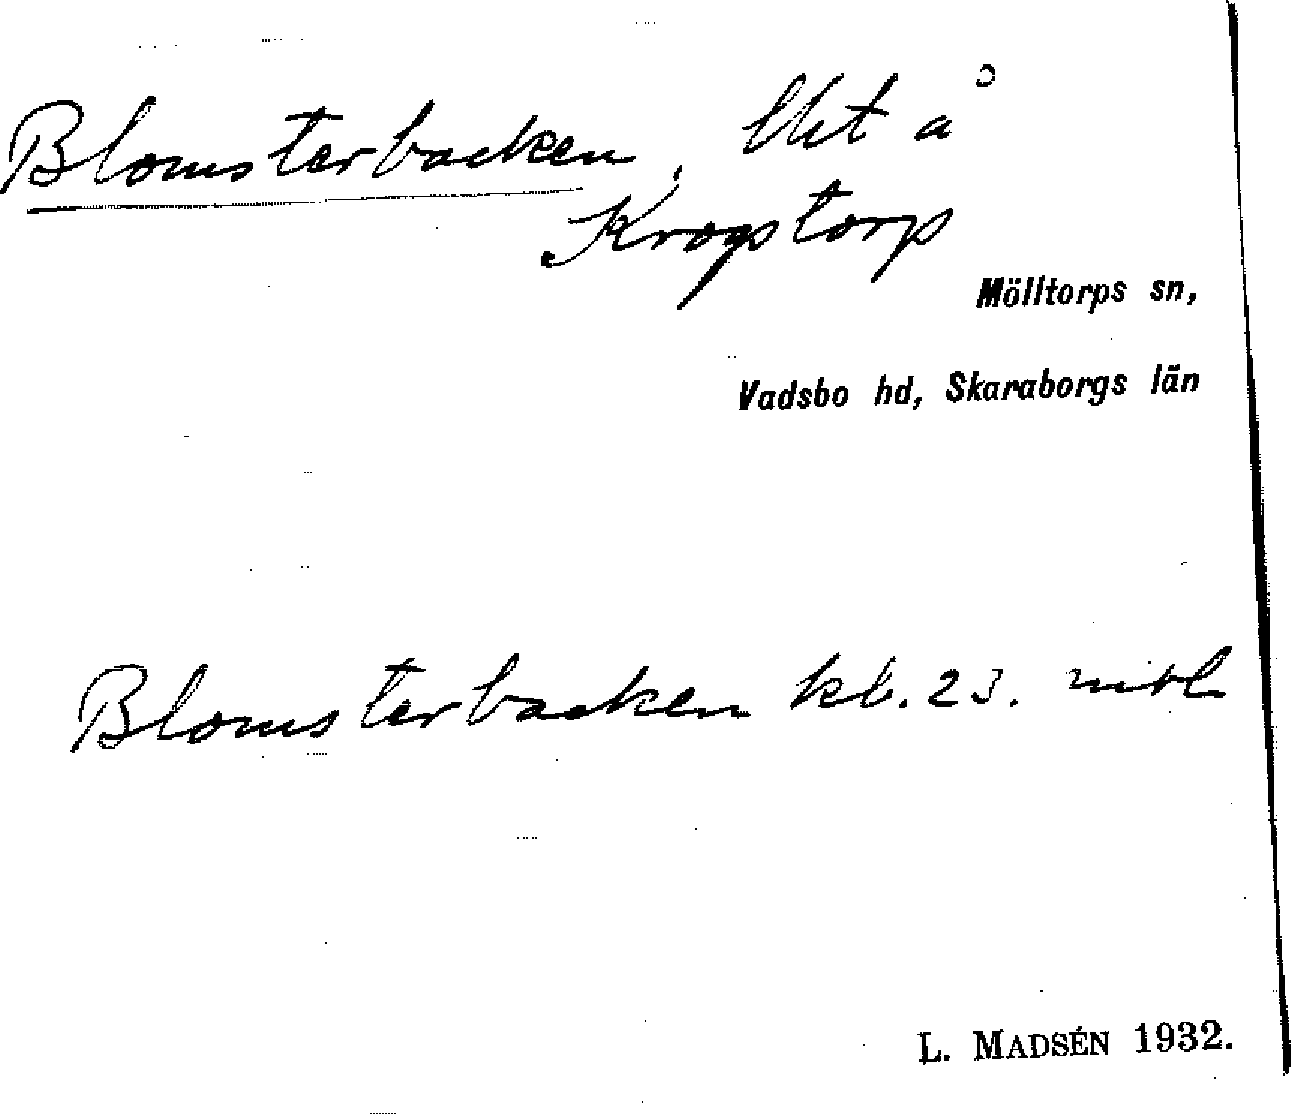 Blomsterbacken, Lht å
Krogstorp
Mölltorps sn,
Vadsbo hd, Skaraborgs län
Blomsterbacken kb. 23.
L. MADSÉN 1932.